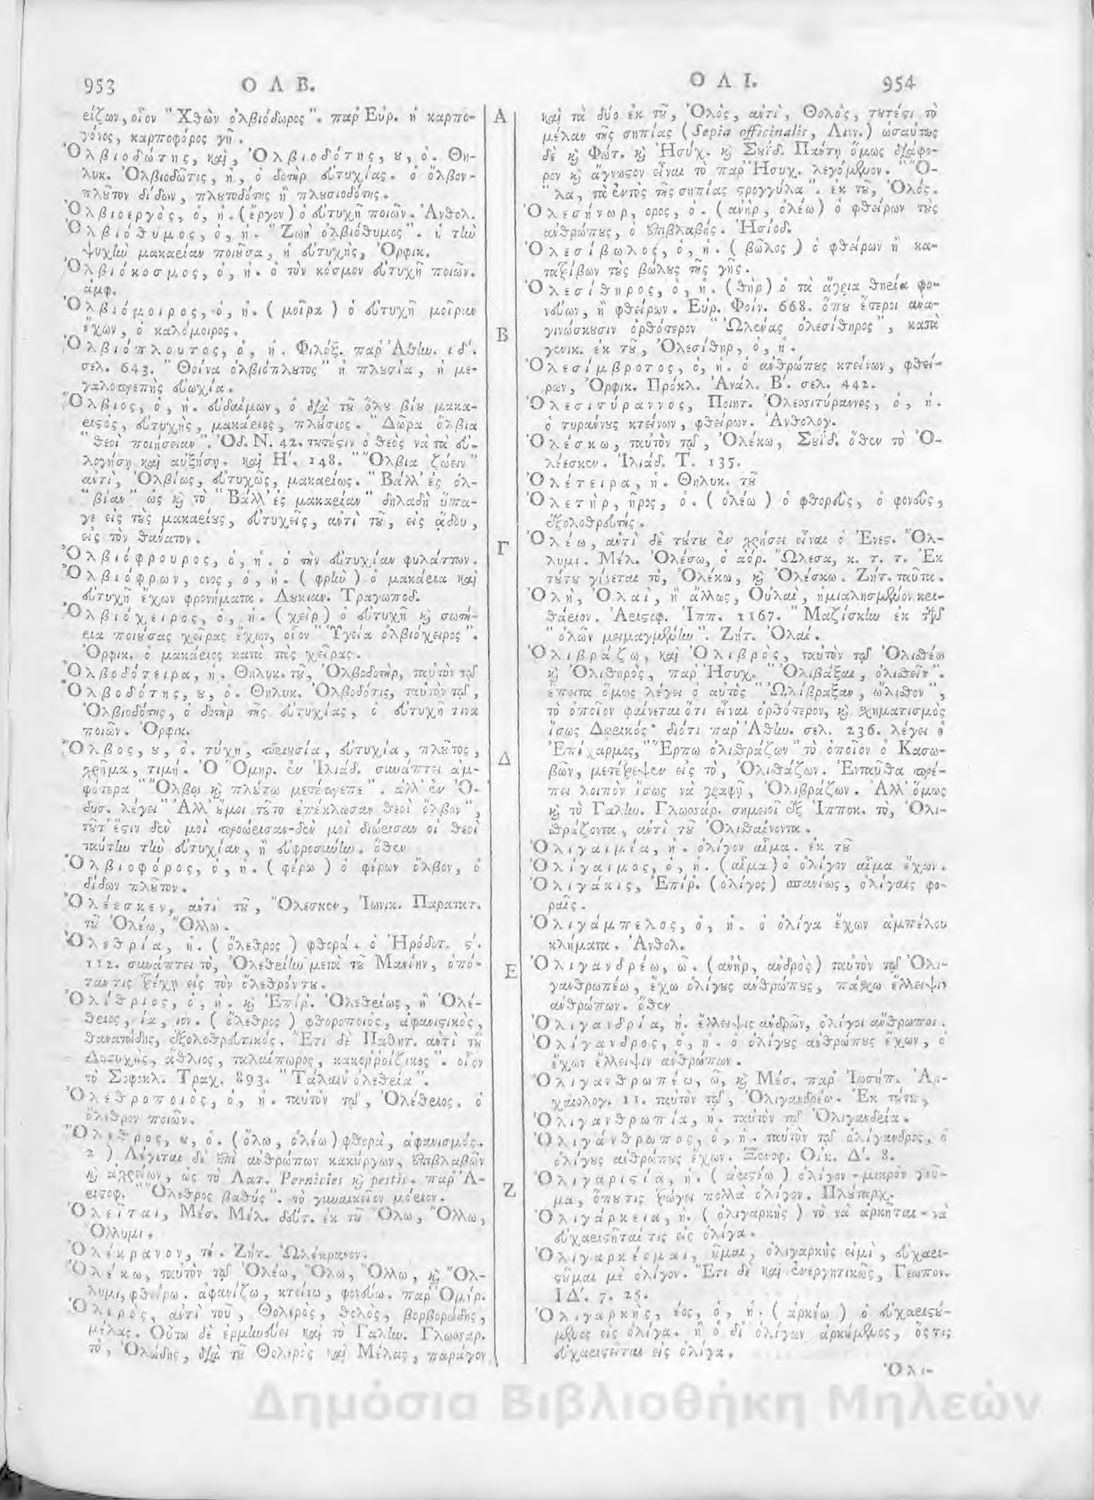 953 Ο Λ Β.
είζων, οἷον "Χθὼν ὀλβιόδωρος". παρ' Εὐρ. ἡ καρπο-
γόνος, καρποφόρος γῆ.
Ὀλβιοδώτης, καὶ, Ὀλβιοδότης, ου, ὁ. Θη-
λυκ. Ὀλβιοδῶτις, ἡ, ὁ δοτὴρ εὐτυχίας. ὁ ὄλβον-
πλοῦτον δίδων, πλουτοδότης ἢ πλουσιοδότης.
Ὀλβιοεργὸς, ὁ, ἡ. (ἔργον) ὁ εὐτυχῆ ποιῶν. Ἀνθολ.
Ὀλβιόθυμος, ὁ, ἡ. "Ζωὴ ὀλβιόθυμος". ἡ τὴν
ψυχὴν μακαρίαν ποιοῦσα, ἡ εὐτυχὴς, Ὀρφικ.
Ὀλβιόκοσμος, ὁ, ἡ. ὁ τὸν κόσμον εὐτυχῆ ποιῶν.
ἀμφ.
Ὀλβιόμοιρος, ὁ, ἡ. (μοῖρα) ὁ εὐτυχῆ μοῖραν
ἔχων, ὁ καλόμοιρος.
Ὀλβιόπλουτος, ὁ, ἡ. Φιλόξ. παρ' Ἀθην. ιδ'.
σελ. 643. "Θοίνα ὀλβιόπλουτος" ἡ πλουσία, ἡ με-
γαλοπρεπὴς εὐωχία.
Ὄλβιος, ὁ, ἡ. εὐδαίμων, ὁ διὰ τοῦ ὅλου βίου μακα-
ριστός, εὐτυχὴς, μακάριος, πλούσιος. "Δῶρα ὄλβια
"θεοὶ ποιήσειαν". Ὀδ. Ν. 42. τουτέστιν ὁ θεὸς νὰ τὰ εὐ-
λογήσῃ καὶ αὐξήσῃ. καὶ Η'. 148. "Ὄλβια ζώειν"
ἀντὶ, Ὀλβίως, εὐτυχῶς, μακαρίως. "Βάλλ' ἐς ὀλ-
"βίαν" ὡς καὶ τὸ "Βάλλ' ἐς μακαρίαν" δηλαδὴ ὕπα-
γε εἰς τοὺς μακαρίους, εὐτυχεῖς, ἀντὶ τοῦ, εἰς ᾅδου,
εἰς τὸν θάνατον.
Ὀλβιόφρουρος, ὁ, ἡ. ὁ τὴν εὐτυχίαν φυλάττων.
Ὀλβιόφρων, ονος, ὁ, ἡ. (φρὴν) ὁ μακάρια καὶ
εὐτυχῆ ἔχων φρονήματα. Λουκιαν. Τραγωποδ.
Ὀλβιόχειρος, ὁ, ἡ. (χεὶρ) ὁ εὐτυχῆ καὶ σωτή-
ρια ποιούσας χεῖρας ἔχων, οἷον "Ὑγεία ὀλβιόχειρος".
Ὀρφικ. ὁ μακάριος κατὰ τὰς χεῖρας.
Ὀλβοδότειρα, ἡ. Θηλυκ. τοῦ, Ὀλβοδοτὴρ, ταυτὸν τῷ
Ὀλβοδότης, ου, ὁ. Θηλυκ. Ὀλβοδότις, ταυτὸν τῷ,
Ὀλβιοδότης, ὁ δοτὴρ τῆς εὐτυχίας, ὁ εὐτυχῆ τινα
ποιῶν. Ὀρφικ.
Ὄλβος, ου, ὁ. τύχη, περιουσία, εὐτυχία, πλοῦτος,
χρῆμα, τιμή. Ὁ Ὅμηρ. ἐν Ἰλιάδ. συνάπτει ἀμ-
φότερα "Ὄλβῳ καὶ πλούτῳ μετέπρεπε". ἀλλ' ἐν Ὀ-
δυσ. λέγει "Ἀλλ' οὔ μοι τοῦτο ἐπέκλωσαν θεοὶ ὄλβον",
τουτέστιν δὲν μοὶ προώρισαν-δὲν μοὶ διώρισαν οἱ θεοὶ
ταύτην τὴν εὐτυχίαν, ἢ εὐφροσύνην. ὅθεν
Ὀλβοφόρος, ὁ, ἡ. (φέρω) ὁ φέρων ὄλβον, ὁ
δίδων πλοῦτον.
Ὀλέεσκεν, ἀντὶ τοῦ, Ὄλεσκεν, Ἰωνικ. Παρατατ.
τοῦ Ὀλέω, Ὄλλω.
Ὀλεθρία, ἡ. (ὄλεθρος) φθερά. ὁ Ἡρόδοτ. ς'.
112. συνάπτει τὸ, Ὀλεθρίην μετὰ τοῦ Μανίην, ὁπό-
ταν τις τρέχῃ εἰς τὸν ὄλεθρόν του.
Ὀλέθριος, ὁ, ἡ. καὶ Ἐπίρ. Ὀλεθρίως, ἢ Ὀλέ-
θριος, ία, ιον. (ὄλεθρος) φθοροποιὸς, ἀφανιστικὸς,
θανατώδης, ἐξολοθρευτικός. Ἔτι δὲ Παθητ. ἀντὶ τοῦ
Δυστυχὴς, ἄθλιος, ταλαίπωρος, κακορροίζικος". οἷον
τὸ Σοφοκλ. Τραχ. 893. "Τάλαιν' ὀλεθρία".
Ὀλεθροποιὸς, ὁ, ἡ. ταυτὸν τῷ, Ὀλέθριος. ὁ
ὄλεθρον ποιῶν.
Ὄλεθρος, ου, ὁ. (ὄλω, ὀλέω) φθορὰ, ἀφανισμός.
2) Λέγεται δὲ ἐπὶ ἀνθρώπων κακούργων, ἐπιβλαβῶν
καὶ ἀχρείων, ὡς τὸ Λατ. Pernicies καὶ pestis. παρ' Ἀ-
ριστοφ. "Ὄλεθρος βαθύς". τὸ γυναικεῖον μόριον.
Ὀλεῖται, Μέσ. Μέλ. δεύτ. ἐκ τοῦ Ὄλω, Ὄλλω,
Ὄλλυμι.
Ὀλέκρανον, τό. Ζήτ. Ὠλέκρανον.
Ὀλέκω, ταυτὸν τῷ Ὀλέω, Ὄλω, Ὄλλω, καὶ Ὄλ-
λυμι, φθείρω. ἀφανίζω, κτείνω, φονεύω. παρ' Ὁμήρ.
Ὀλερὸς, ἀντὶ τοῦ, Θολερὸς, θολὸς, βορβορώδης,
μέλας. Οὕτω δὲ ἑρμηνεύει καὶ τὸ Γαλην. Γλωσσαρ.
τὸ, Ὀλώδης, διὰ τοῦ Θολερὸς καὶ Μέλας, παράγον
Α
Β
Γ
Δ
Ε
Ζ
Ο Λ Ι. 954
καὶ τὰ δύο ἐκ τοῦ, Ὀλὸς, ἀντὶ, Θολὸς, τουτέστι τὸ
μέλαν τῆς σηπίας (Sepia officinalis, Λινν.) ὡσαύτως
δὲ καὶ Φώτ. καὶ Ἡσύχ. καὶ Σουΐδ. Πάντῃ ὅμως διάφο-
ρον καὶ ἄγνωστον εἶναι τὸ παρ' Ἡσυχ. λεγόμενον. "Ὀ-
"λα, τὰ ἐντὸς τῆς σηπίας στρογγύλα". ἐκ τοῦ, Ὀλός.
Ὀλεσήνωρ, ορος, ὁ. (ἀνὴρ, ὀλέω) ὁ φθείρων τοὺς
ἀνθρώπους, ὁ ἐπιβλαβής. Ἡσίοδ.
Ὀλεσίβωλος, ὁ, ἡ. (βῶλος) ὁ φθείρων ἢ κα-
τατρίβων τοὺς βώλους τῆς γῆς.
Ὀλεσίθηρος, ὁ, ἡ. (θὴρ) ὁ τὰ ἄγρια θηρία φο-
νεύων, ἢ φθείρων. Εὐρ. Φοίν. 668. ὅπου ἕτεροι ἀνα-
γινώσκουσιν ὀρθότερον "Ὠλένας ὀλεσίθηρος", κατὰ
γενικ. ἐκ τοῦ, Ὀλεσίθηρ, ὁ, ἡ.
Ὀλεσίμβροτος, ὁ, ἡ. ὁ ἀνθρώπους κτείνων, φθεί-
ρων, Ὀρφικ. Πρόκλ. Ἀνάλ. Β'. σελ. 442.
Ὀλεσιτύραννός, Ποιητ. Ὀλεσσιτύραννος, ὁ, ἡ.
ὁ τυράννους κτείνων, φθείρων. Ἀνθολογ.
Ὀλέσκω, ταυτὸν τῷ, Ὀλέκω, Σουΐδ. ὅθεν τὸ Ὀ-
λέεσκεν. Ἰλιάδ. Τ. 135.
Ὀλέτειρα, ἡ. Θηλυκ. τοῦ
Ὀλετὴρ, ῆρος, ὁ. (ὀλέω) ὁ φθορεὺς, ὁ φονεὺς,
ἐξολοθρευτής.
Ὀλέω, ἀντὶ δὲ τούτου ἐν χρήσει εἶναι ὁ Ἐνεστ. Ὄλ-
λυμι. Μέλ. Ὀλέσω, ὁ ἀόρ. Ὤλεσα, κ. τ. τ. Ἐκ
τούτου γίνεται τὸ, Ὀλέκω, καὶ Ὀλέσκω. Ζήτ. ταῦτα.
Ὀλὴ, Ὀλαὶ, ἢ ἄλλως, Οὐλαὶ, ἡμιαλησμένον κρι-
θάριον. Ἀριστοφ. Ἱππ. 1167. "Μαζίσκην ἐκ τῶν
"ὀλῶν μεμαγμένην". Ζήτ. Ὀλαί.
Ὀλιβράζω, καὶ Ὀλιβρὸς, ταυτὸν τῷ Ὀλισθέω
καὶ Ὀλισθηρὸς, παρ' Ἡσυχ. "Ὀλιβάξαι, ὀλισθεῖν".
ἔπειτα ὅμως λέγει ὁ αὐτὸς "Ὠλίβραξαν, ὤλισθον",
τὸ ὁποῖον φαίνεται ὅτι εἶναι ὀρθότερον, καὶ σχηματισμὸς
ἴσως Δωρικός· διότι παρ' Ἀθην. σελ. 236. λέγει ὁ
Ἐπίχαρμος, "Ἕρπω ὀλισθράζων" τὸ ὁποῖον ὁ Κασω-
βῶν, μετέτρεψεν εἰς τὸ, Ὀλισθάζων. Ἐνταῦθα πρέ-
πει λοιπὸν ἴσως νὰ γραφῇ, Ὀλιβράζων. Ἀλλ' ὅμως
καὶ τὸ Γαλην. Γλωσσάρ. σημειοῖ ἐξ Ἱπποκ. τὸ, Ὀλι-
σθράζοντα, ἀντὶ τοῦ Ὀλισθαίνοντα.
Ὀλιγαιμία, ἡ. ὀλίγον αἷμα. ἐκ τοῦ
Ὀλίγαιμος, ὁ, ἡ. (αἷμα) ὁ ὀλίγον αἷμα ἔχων.
Ὀλιγάκις, Ἐπίρ. (ὀλίγος) σπανίως, ὀλίγαις φο-
ραῖς.
Ὀλιγάμπελος, ὁ, ἡ. ὁ ὀλίγα ἔχων ἀμπέλου
κλήματα. Ἀνθολ.
Ὀλιγανδρέω, ῶ. (ἀνὴρ, ἀνδρὸς) ταυτὸν τῷ Ὀλι-
γανθρωπέω, ἔχω ὀλίγους ἀνθρώπους, πάσχω ἔλλειψιν
ἀνθρώπων. ὅθεν
Ὀλιγανδρία, ἡ. ἔλλειψις ἀνδρῶν, ὀλίγοι ἄνθρωποι.
Ὀλίγανδρος, ὁ, ἡ. ὁ ὀλίγους ἀνθρώπους ἔχων, ὁ
ἔχων ἔλλειψιν ἀνθρώπων.
Ὀλιγανθρωπέω, ῶ, καὶ Μέσ. παρ' Ἰωσήπ. Ἀρ-
χαιολογ. 11. ταυτὸν τῷ, Ὀλιγανδρέω. Ἐκ τούτου,
Ὀλιγανθρωπία, ἡ. ταυτὸν τῷ Ὀλιγανδρία.
Ὀλιγάνθρωπος, ὁ, ἡ. ταυτὸν τῷ ὀλίγανδρος, ὁ
ὀλίγους ἀνθρώπους ἔχων. Ξενοφ. Οἰκ. Δ'. 8.
Ὀλιγαριστία, ἡ. (ἀριστάω) ὀλίγον-μικρὸν γεῦ-
μα, ὅπου τις τρώγει πολλὰ ὀλίγον. Πλούταρχ.
Ὀλιγάρκεια, ἡ. (ὀλιγαρκὴς) τὸ νὰ ἀρκῆται-νὰ
εὐχαριστῆταί τις εἰς ὀλίγα.
Ὀλιγαρκέομαι, οῦμαι, ὀλιγαρκής εἰμι, εὐχαρι-
στοῦμαι μὲ ὀλίγον. Ἔτι δὲ καὶ ἐνεργητικῶς, Γεωπον.
ΙΔ'. 7. 25.
Ὀλιγαρκὴς, έος, ὁ, ἡ. (ἀρκέω) ὁ εὐχαριστού-
μενος εἰς ὀλίγα. ἢ ὁ δι' ὀλίγων ἀρκούμενος, ὅστις
εὐχαριστεῖται εἰς ὀλίγα.
Ὀλι-
Δημόσια Βιβλιοθήκη Μηλεών